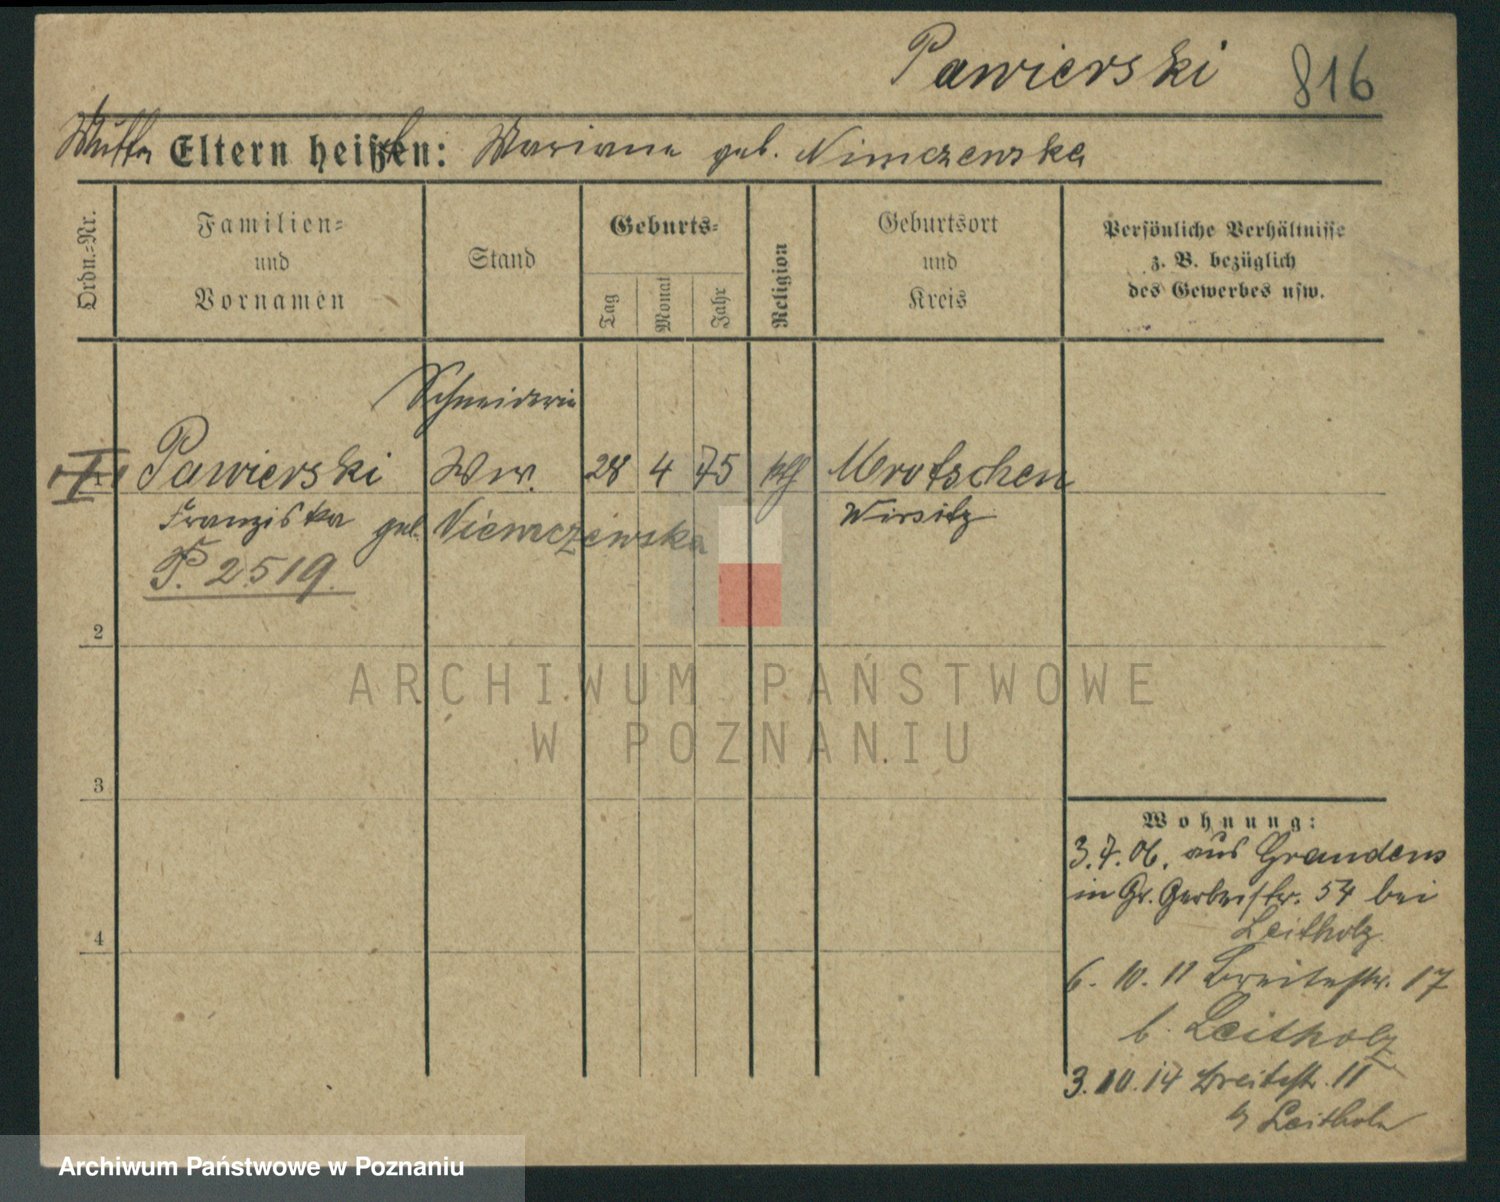 Pawierski 816
Mutter Eltern heißen: Mariana geb. Nimczewska
Ordn.-Nr.
Familien- und Vornamen
Stand
Geburts-
Tag
Monat
Jahr
Religion
Geburtsort und Kreis
Persönliche Verhältnisse
z. B. bezüglich
des Gewerbes usw.
Schneiderin
I Pawierski Ww. 28 4 75 kth Mrotschen
Franziska geb. Niemczewska Wirsitz
P. 2519.
2
3
4
Wohnung:
3.7.06. aus Graudenz
in Gr. Gerberstr. 54 bei
Leitholz
6. 10. 11 Breitestr. 17
b. Leitholz
3.10.14 Breitestr. 11
b Leitholz
ARCHIWUM PAŃSTWOWE
W POZNANIU
Archiwum Państwowe w Poznaniu